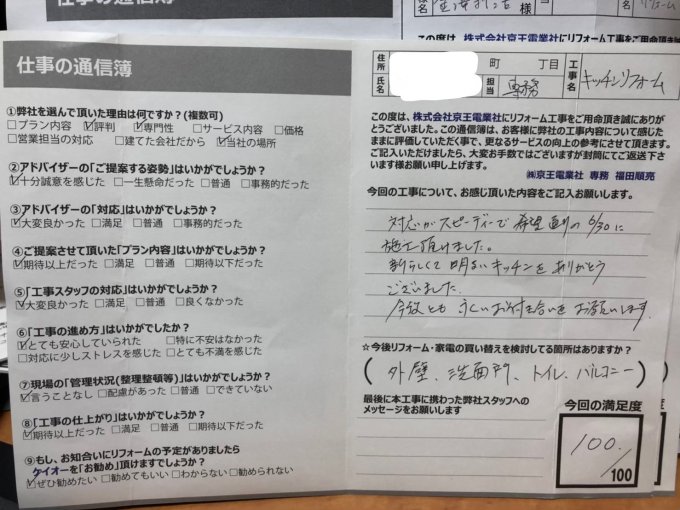 仕事の通信簿
様
この度は、株式会社京王電業社にリフォーム工事をご用命頂き誠
仕事の通信簿
住所 町 丁目
氏名
担当 専務
工事名 キッチンリフォーム
①弊社を選んで頂いた理由は何ですか？(複数可)
□プラン内容 ☑評判 ☑専門性 □サービス内容 □価格
□営業担当の対応 □建てた会社だから ☑当社の場所
②アドバイザーの「ご提案する姿勢」はいかがでしょうか？
☑十分誠意を感じた □一生懸命だった □普通 □事務的だった
③アドバイザーの「対応」はいかがでしょうか？
☑大変良かった □満足 □普通 □事務的だった
④ご提案させて頂いた「プラン内容」はいかがでしょうか？
☑期待以上だった □満足 □普通 □期待以下だった
⑤「工事スタッフの対応」はいかがでしょうか？
☑大変良かった □満足 □普通 □良くなかった
⑥「工事の進め方」はいかがでしたか？
☑とても安心していられた □特に不安はなかった
□対応に少しストレスを感じた □とても不満を感じた
⑦現場の「管理状況(整理整頓等)」はいかがでしょうか？
☑言うことなし □配慮があった □普通 □できていない
⑧「工事の仕上がり」はいかがでしょうか？
☑期待以上だった □満足 □普通 □期待以下だった
⑨もし、お知合いにリフォームの予定がありましたら
ケイオーを「お勧め」頂けますでしょうか？
☑ぜひ勧めたい □勧めてもいい □わからない □勧められない
この度は、株式会社京王電業社にリフォーム工事をご用命頂き誠にありが
とうございました。この通信簿は、お客様に弊社の工事内容について感じた
ままに評価していただく事で、更なるサービスの向上の参考にさせて頂きます。
ご記入いただけましたら、大変お手数ではございますが封筒にてご返送下さ
います様お願い申し上げます。
㈱京王電業社 専務 福田順亮
今回の工事について、お感じ頂いた内容をご記入お願いします。
対応がスピーディーで希望通りの6/30に
施工頂けました。
新らしくて明るいキッチンをありがとう
ございました。
今後とも永いお付き合いをお願いします。
☆今後リフォーム・家電の買い替えを検討してる箇所はありますか？
(外壁、洗面所、トイレ、バルコニー)
最後に本工事に携わった弊社スタッフへの
メッセージをお願いします
今回の満足度
100./100